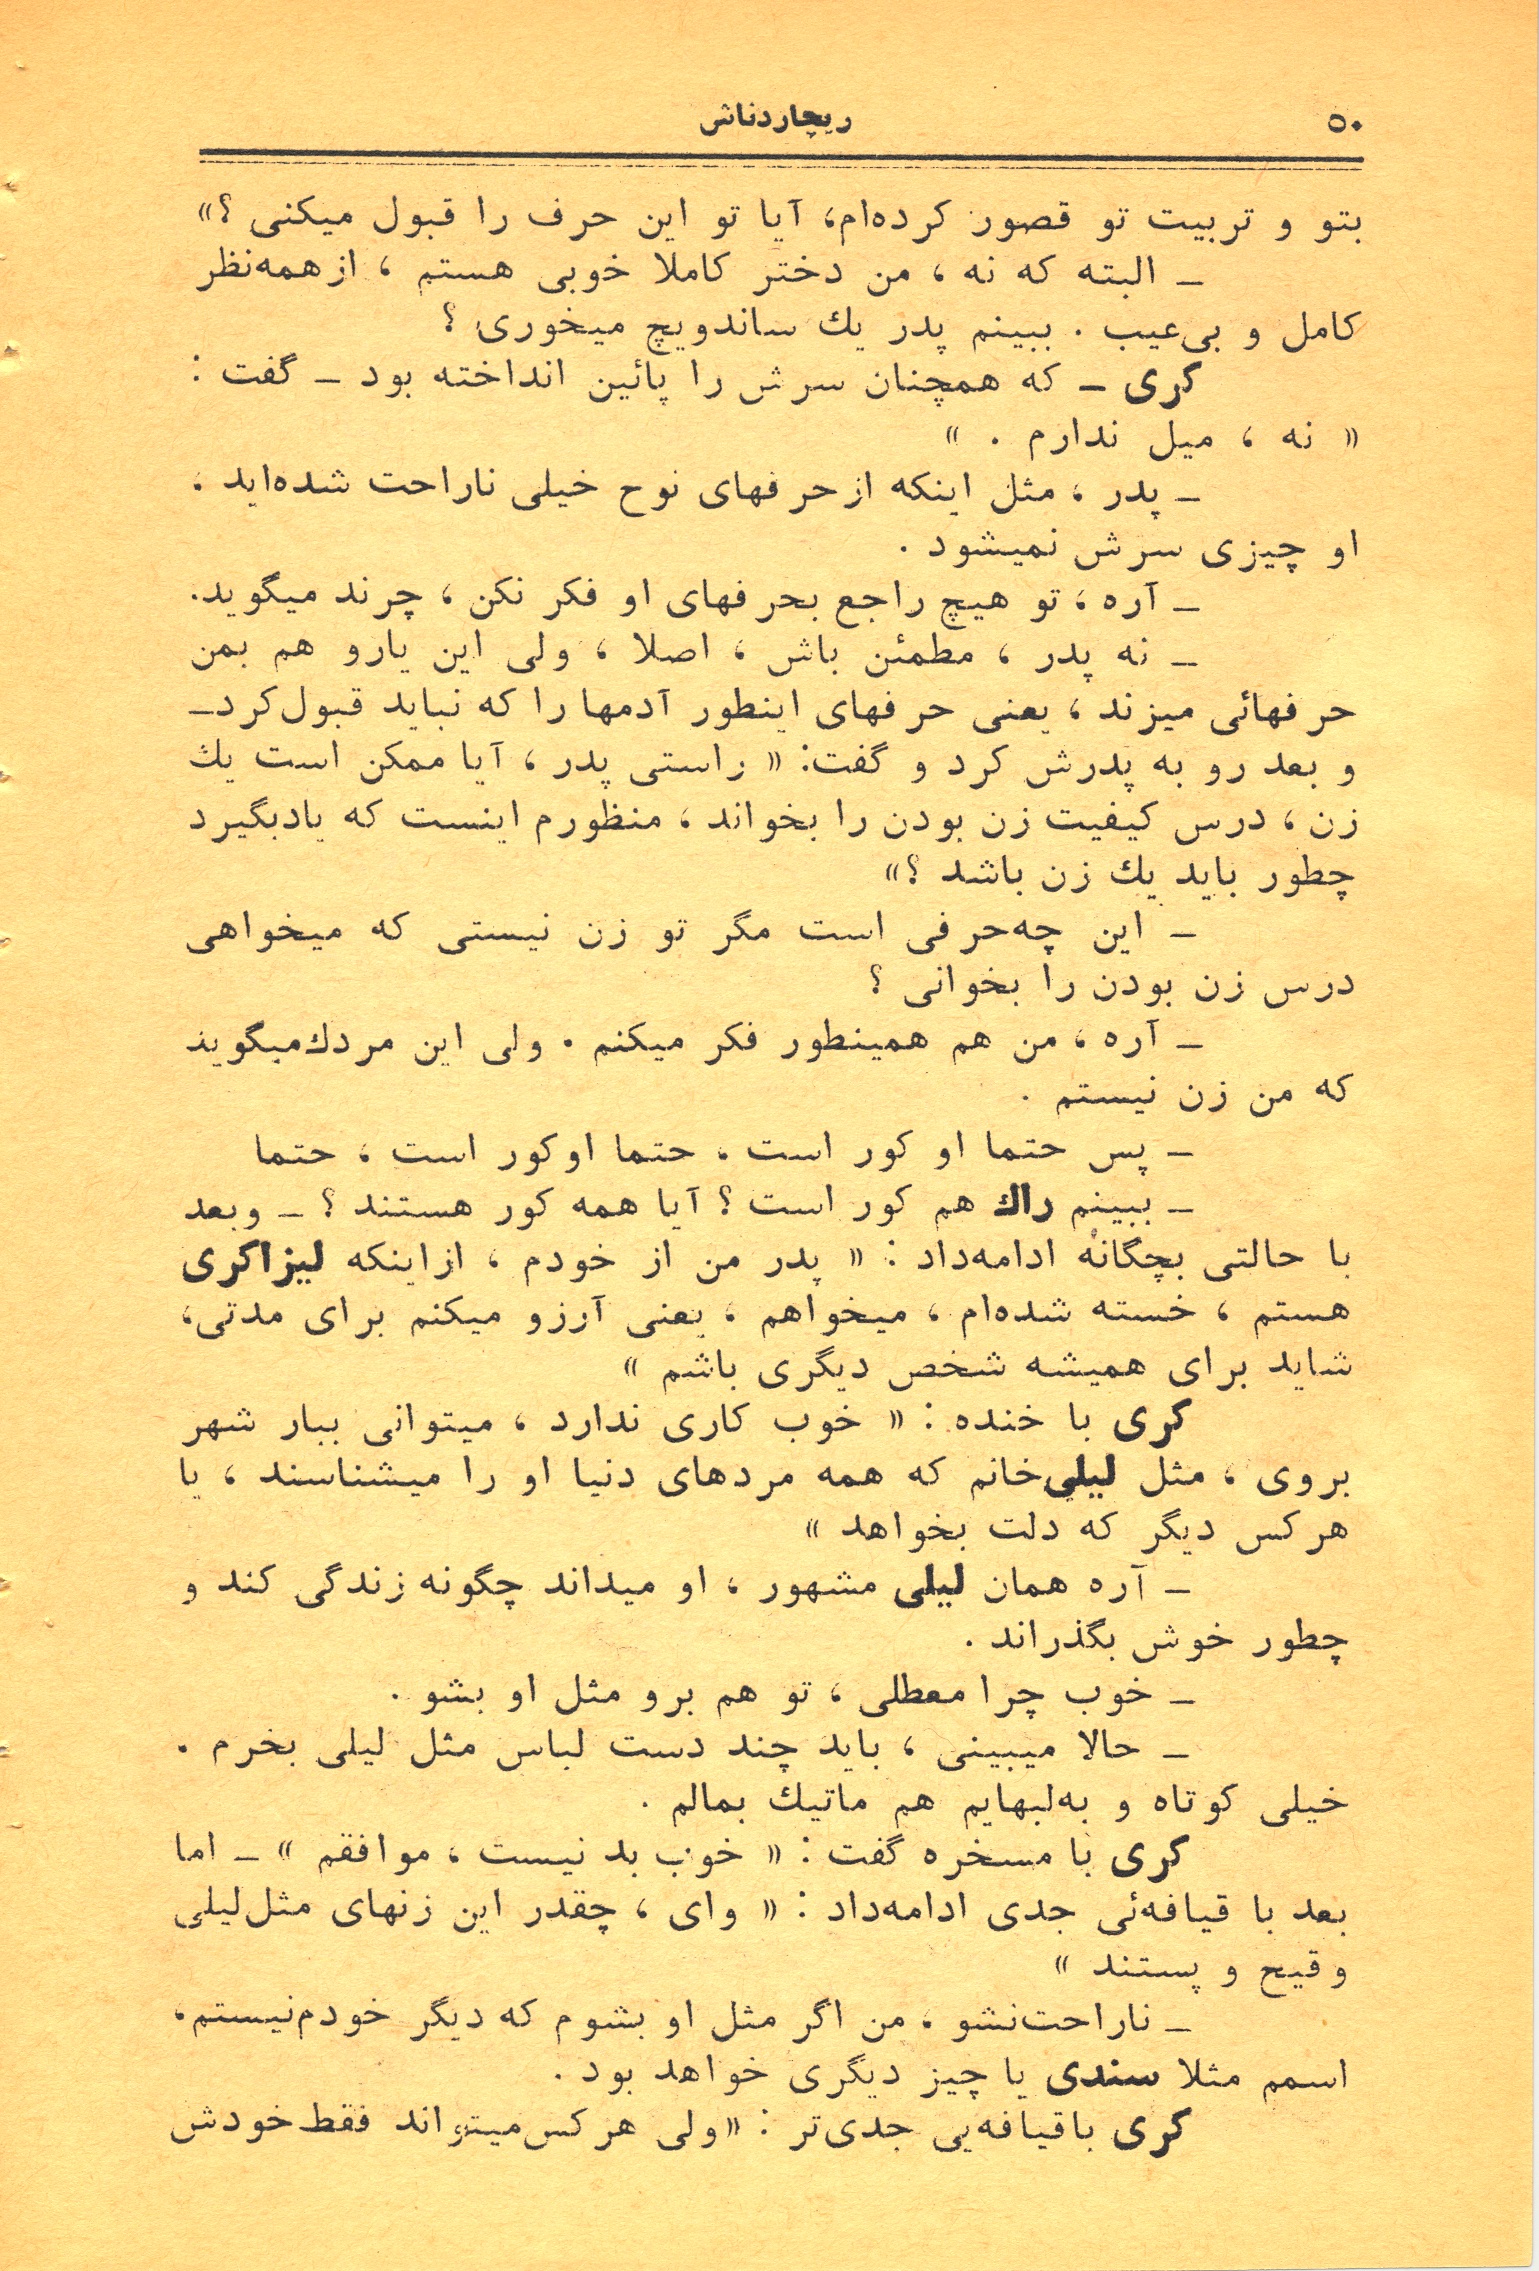 ۵۰
ریچاردناش
بتو و تربیت تو قصور کرده‌ام، آیا تو این حرف را قبول میکنی ؟»
ـ البته که نه ، من دختر کاملا خوبی هستم ، ازهمه‌نظر
کامل و بی‌عیب . ببینم پدر یك ساندویچ میخوری ؟
کری ـ که همچنان سرش را پائین انداخته بود ـ گفت :
« نه ، میل ندارم . »
ـ پدر ، مثل اینکه ازحرفهای نوح خیلی ناراحت شده‌اید ،
او چیزی سرش نمیشود .
ـ آره ، تو هیچ راجع بحرفهای او فکر نکن ، چرند میگوید.
ـ نه پدر ، مطمئن باش ، اصلا ، ولی این یارو هم بمن
حرفهائی میزند ، یعنی حرفهای اینطور آدمها را که نباید قبول‌کرد ـ
و بعد رو به پدرش کرد و گفت: « راستی پدر ، آیا ممکن است یك
زن ، درس کیفیت زن بودن را بخواند ، منظورم اینست که یادبگیرد
چطور باید یك زن باشد ؟»
ـ این چه‌حرفی است مگر تو زن نیستی که میخواهی
درس زن بودن را بخوانی ؟
ـ آره ، من هم همینطور فکر میکنم . ولی این مردك‌میگوید
که من زن نیستم .
ـ پس حتما او کور است ، حتما اوکور است ، حتما
ـ ببینم راك هم کور است ؟ آیا همه کور هستند ؟ ـ وبعد
با حالتی بچگانه ادامه‌داد : « پدر من از خودم ، ازاینکه لیزاکری
هستم ، خسته شده‌ام ، میخواهم ، یعنی آرزو میکنم برای مدتی،
شاید برای همیشه شخص دیگری باشم »
کری با خنده : « خوب کاری ندارد ، میتوانی ببار شهر
بروی ، مثل لیلی‌خانم که همه مردهای دنیا او را میشناسند ، یا
هرکس دیگر که دلت بخواهد »
ـ آره همان لیلی مشهور ، او میداند چگونه زندگی کند و
چطور خوش بگذراند .
ـ خوب چرا معطلی ، تو هم برو مثل او بشو .
ـ حالا میبینی ، باید چند دست لباس مثل لیلی بخرم .
خیلی کوتاه و به‌لبهایم هم ماتیك بمالم .
کری با مسخره گفت : « خوب بد نیست ، موافقم » ـ اما
بعد با قیافه‌ئی جدی ادامه‌داد : « وای ، چقدر این زنهای مثل‌لیلی
وقیح و پستند »
ـ ناراحت‌نشو ، من اگر مثل او بشوم که دیگر خودم‌نیستم،
اسمم مثلا سندی یا چیز دیگری خواهد بود .
کری باقیافه‌یی جدی‌تر : «ولی هرکس‌میتواند فقط‌خودش